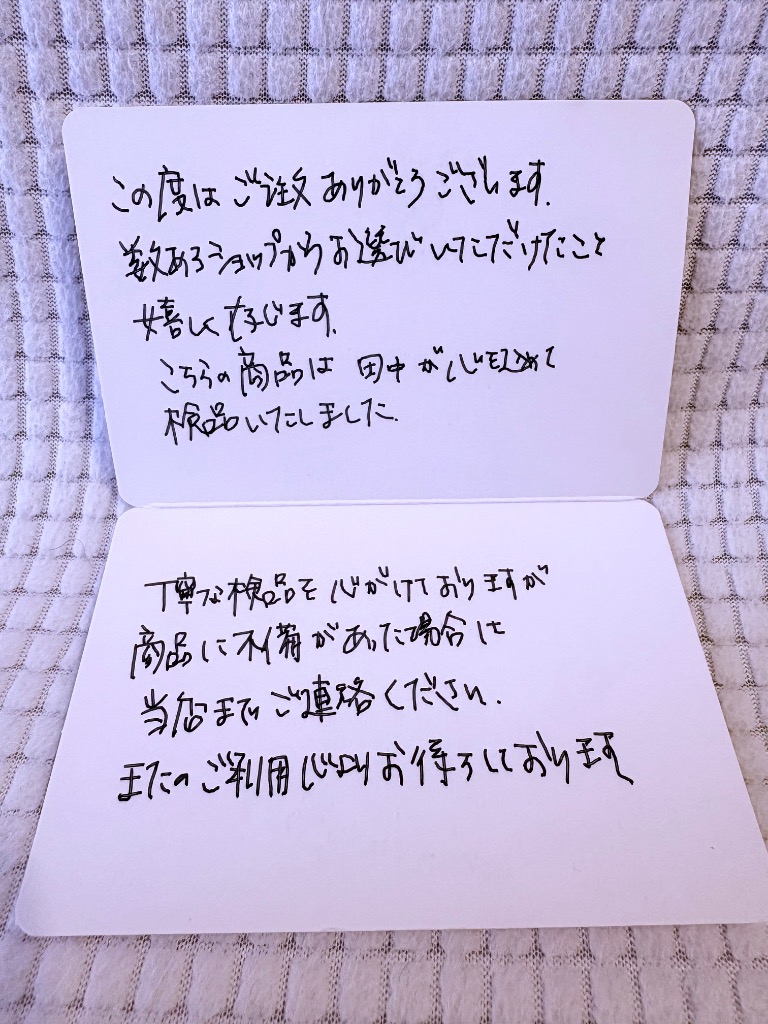 この度はご注文ありがとうございます.
数あるショップからお選びいただけたこと
嬉しく存じます.
こちらの商品は 田中が心を込めて
検品いたしました.
丁寧な検品を心がけておりますが
商品に不備があった場合は
当店までご連絡ください.
またのご利用心よりお待ちしております